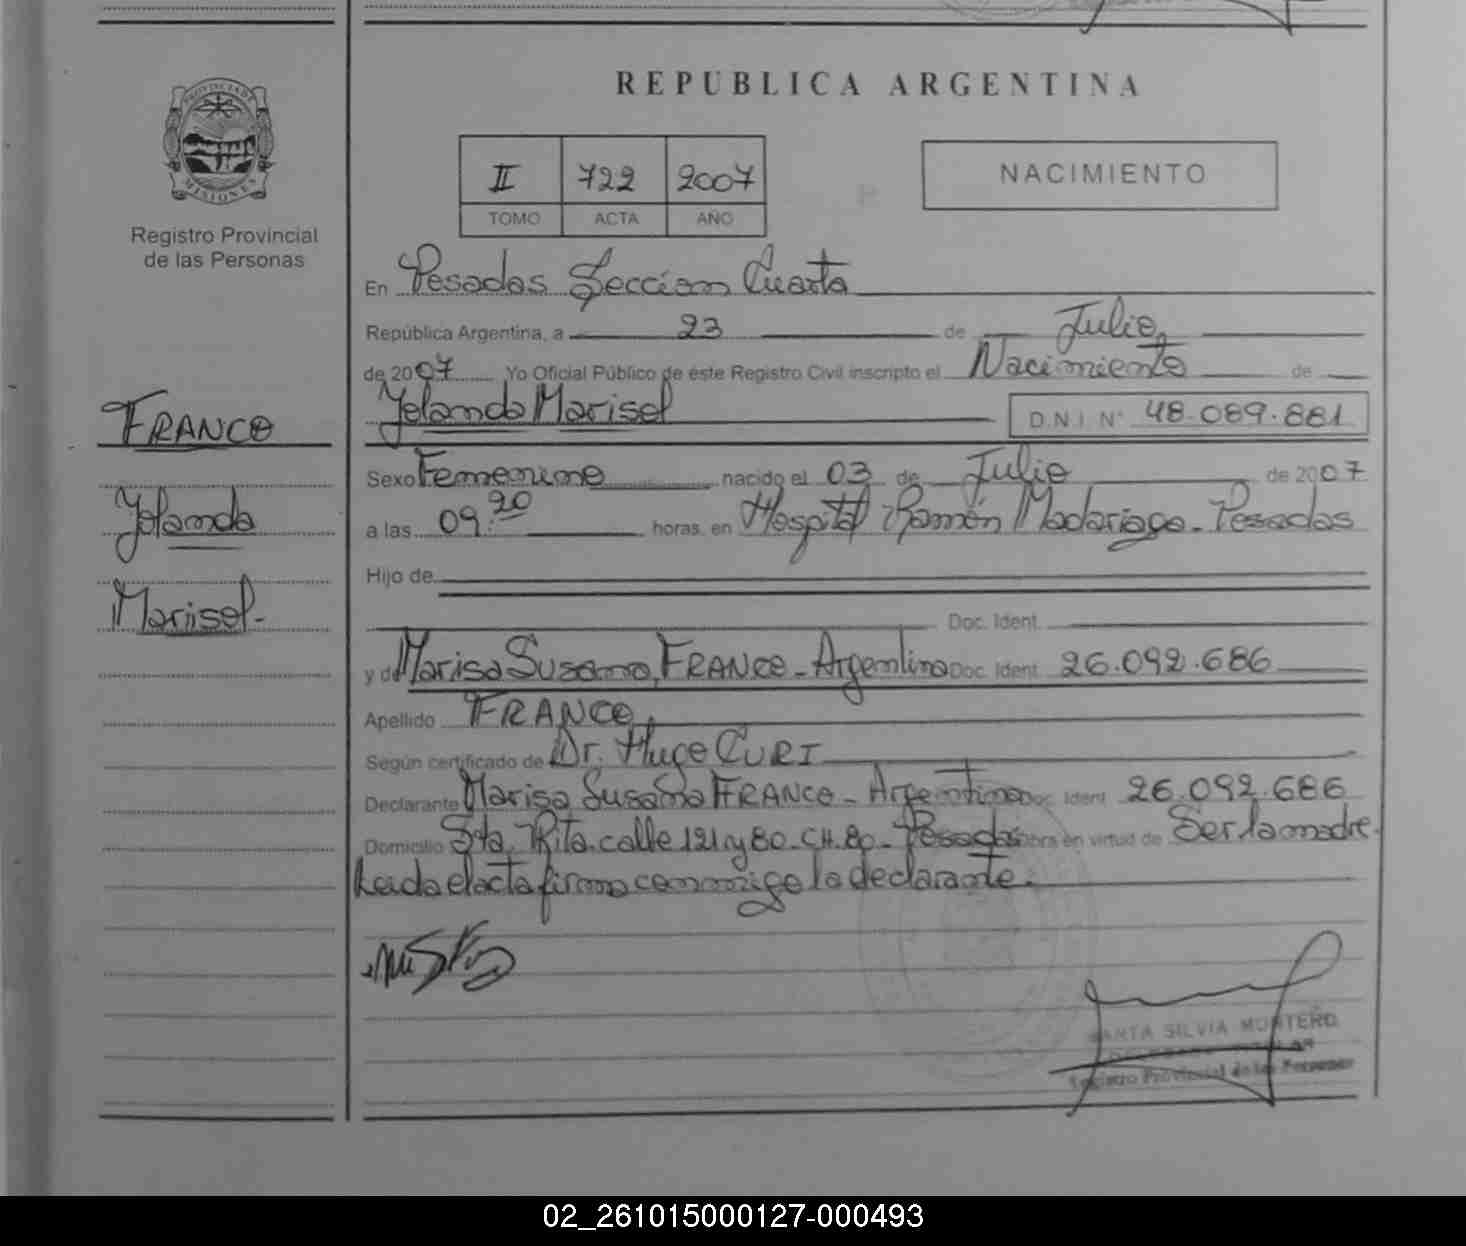 PROVINCIA DE
MISIONES
Registro Provincial
de las Personas
FRANCO
Yolanda
Marisel-
REPUBLICA ARGENTINA
II 722 2007
TOMO ACTA AÑO
NACIMIENTO
En Posadas Sección Cuarta
República Argentina, a 23 de Julio,
de 2007 Yo Oficial Público de este Registro Civil inscripto el Nacimiento de
Yolanda Marisel D.N.I. N° 48.089.881
Sexo Femenino nacido el 03 de Julio de 2007
a las 09:20 horas, en Hospital Ramón Madariaga - Posadas
Hijo de
Doc. Ident.
y de Marisa Susana, FRANCO - Argentina Doc. Ident. 26.092.686
Apellido FRANCO,
Según certificado de Dr. Hugo CURI
Declarante Marisa Susana FRANCO - Argentina Doc. Ident. 26.092.686
Domicilio Sta. Rita. calle 121 y 80 - CH. 80 - Posadas obra en virtud de Ser la madre.
Leida el acta firma conmigo la declarante.
MARTA SILVIA MONTERO
Registro Provincial de las Personas
02_261015000127-000493